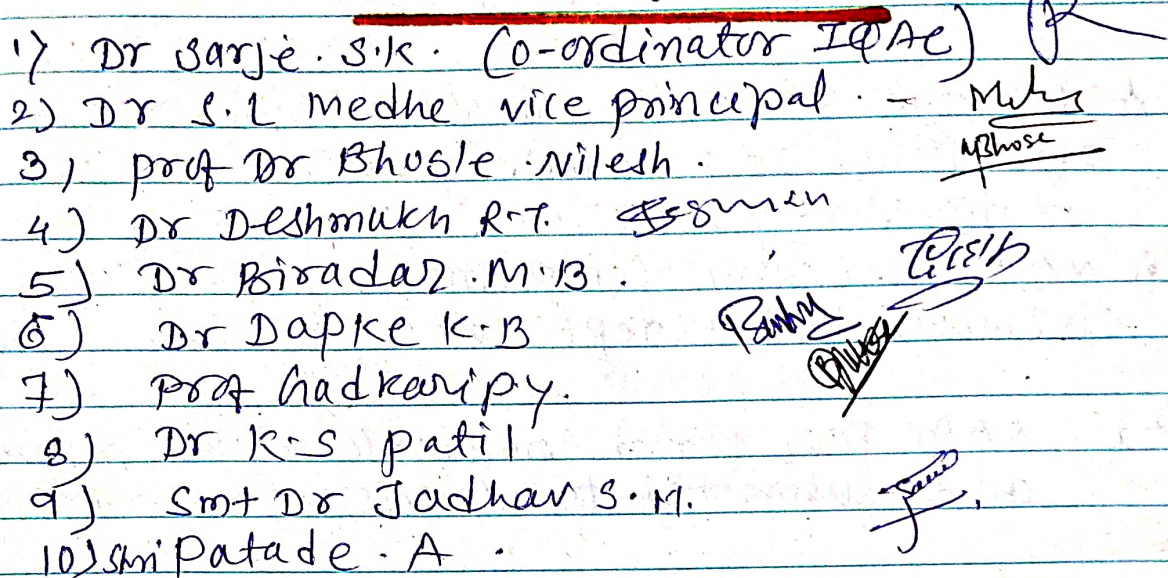 1) Dr Sarje. S.K. (Co-ordinator IQAC)
2) Dr S.L Medhe vice principal. -
3) prof Dr Bhosle Nilesh.
4) Dr Deshmukh R.T.
5) Dr Biradar.M.B.
6) Dr Dapke K.B
7) Prof Gadkari p.y.
8) Dr K.S patil
9) Smt Dr Jadhav S.M.
10) Shri Patade. A.